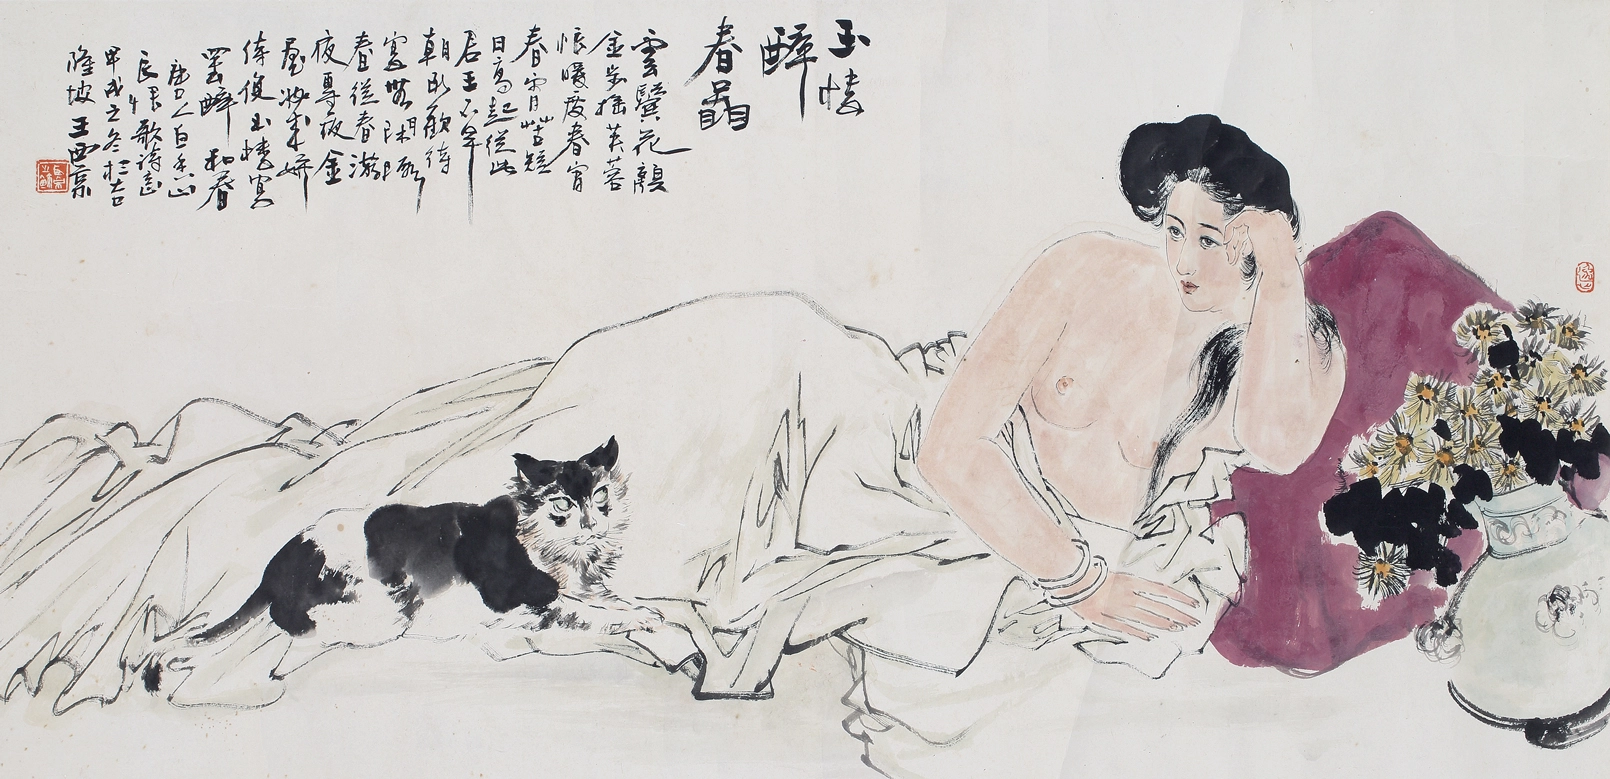 玉樓
醉
春
雲鬢花顏
金步搖芙蓉
帳暖度春宵
春宵苦短
日高起從此
君王不早
朝承歡侍
宴無閑暇
春從春遊
夜專夜金
屋妝成嬌
侍夜玉樓宴
罷醉和春
唐人白香山
長恨歌詩意
甲戌之冬於吉
隆坡王西京